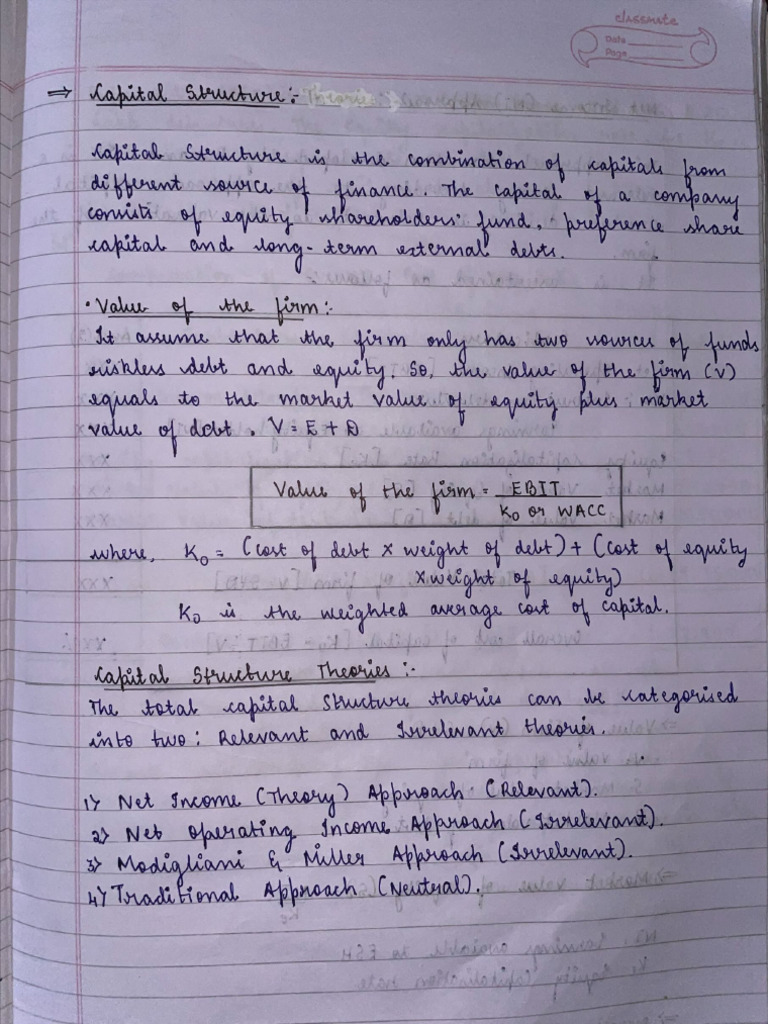 classmate
Date
Page
⇒ Capital Structure :- Theories
Capital Structure is the combination of capitals from
different source of finance. The capital of a company
consists of equity shareholders' fund, preference share
capital and long-term external debts.
• Value of the firm :-
It assume that the firm only has two sources of funds
riskless debt and equity. So, the value of the firm (V)
equals to the market value of equity plus market
value of debt. V = E + D
Value of the firm = EBIT
K0 or WACC
where, K0 = (cost of debt × weight of debt) + (cost of equity
× weight of equity)
K0 is the weighted average cost of capital.
Capital Structure Theories :-
The total capital structure theories can be categorised
into two : Relevant and Irrelevant theories.
1) Net Income (Theory) Approach (Relevant).
2) Net operating Income Approach (Irrelevant).
3) Modigliani & Miller Approach (Irrelevant).
4) Traditional Approach (Neutral).